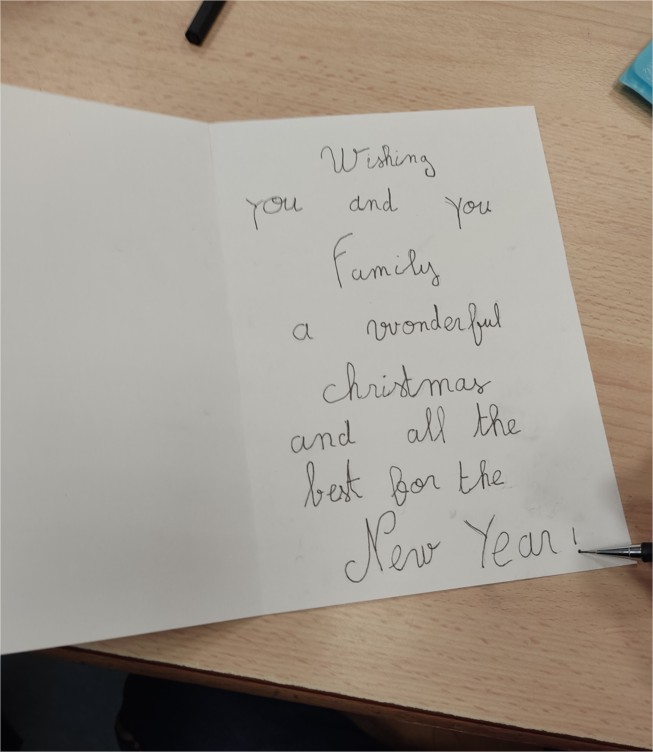 Wishing
you and you
Family
a wonderful
christmas
and all the
best for the
New Year!